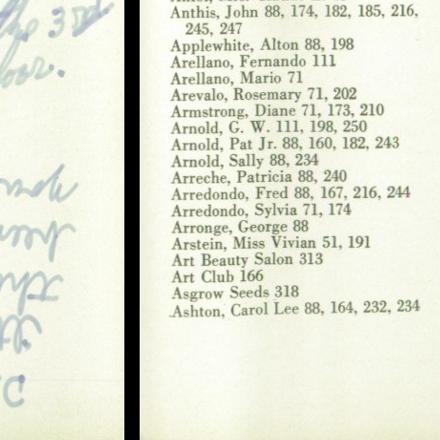 the 3rd
Anthis, John 88, 174, 182, 185, 216,
245, 247
Applewhite, Alton 88, 198
Arellano, Fernando 111
Arellano, Mario 71
Arevalo, Rosemary 71, 202
Armstrong, Diane 71, 173, 210
Arnold, G. W. 111, 198, 250
Arnold, Pat Jr. 88, 160, 182, 243
Arnold, Sally 88, 234
Arreche, Patricia 88, 240
Arredondo, Fred 88, 167, 216, 244
Arredondo, Sylvia 71, 174
Arronge, George 88
Arstein, Miss Vivian 51, 191
Art Beauty Salon 313
Art Club 166
Asgrow Seeds 318
Ashton, Carol Lee 88, 164, 232, 234